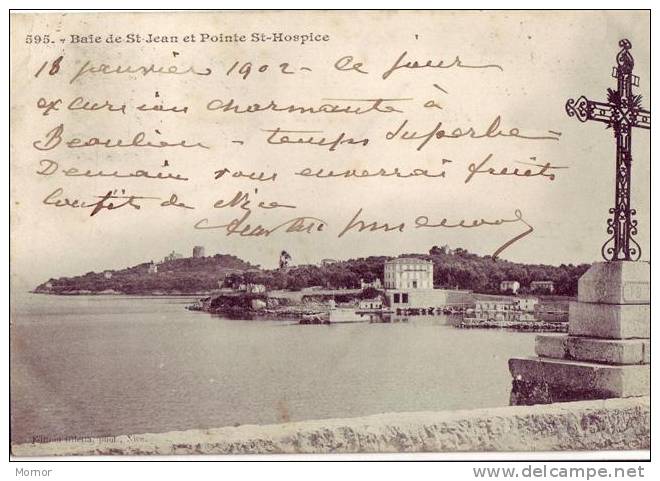 595. - Baie de St-Jean et Pointe St-Hospice
18 janvier 1902 - Ce jour
excursion charmante à
Beaulieu - temps superbe -
Demain vous enverrai fruits
confits de Nice
Edition Giletta, phot., Nice.
Mormor
www.delcampe.net